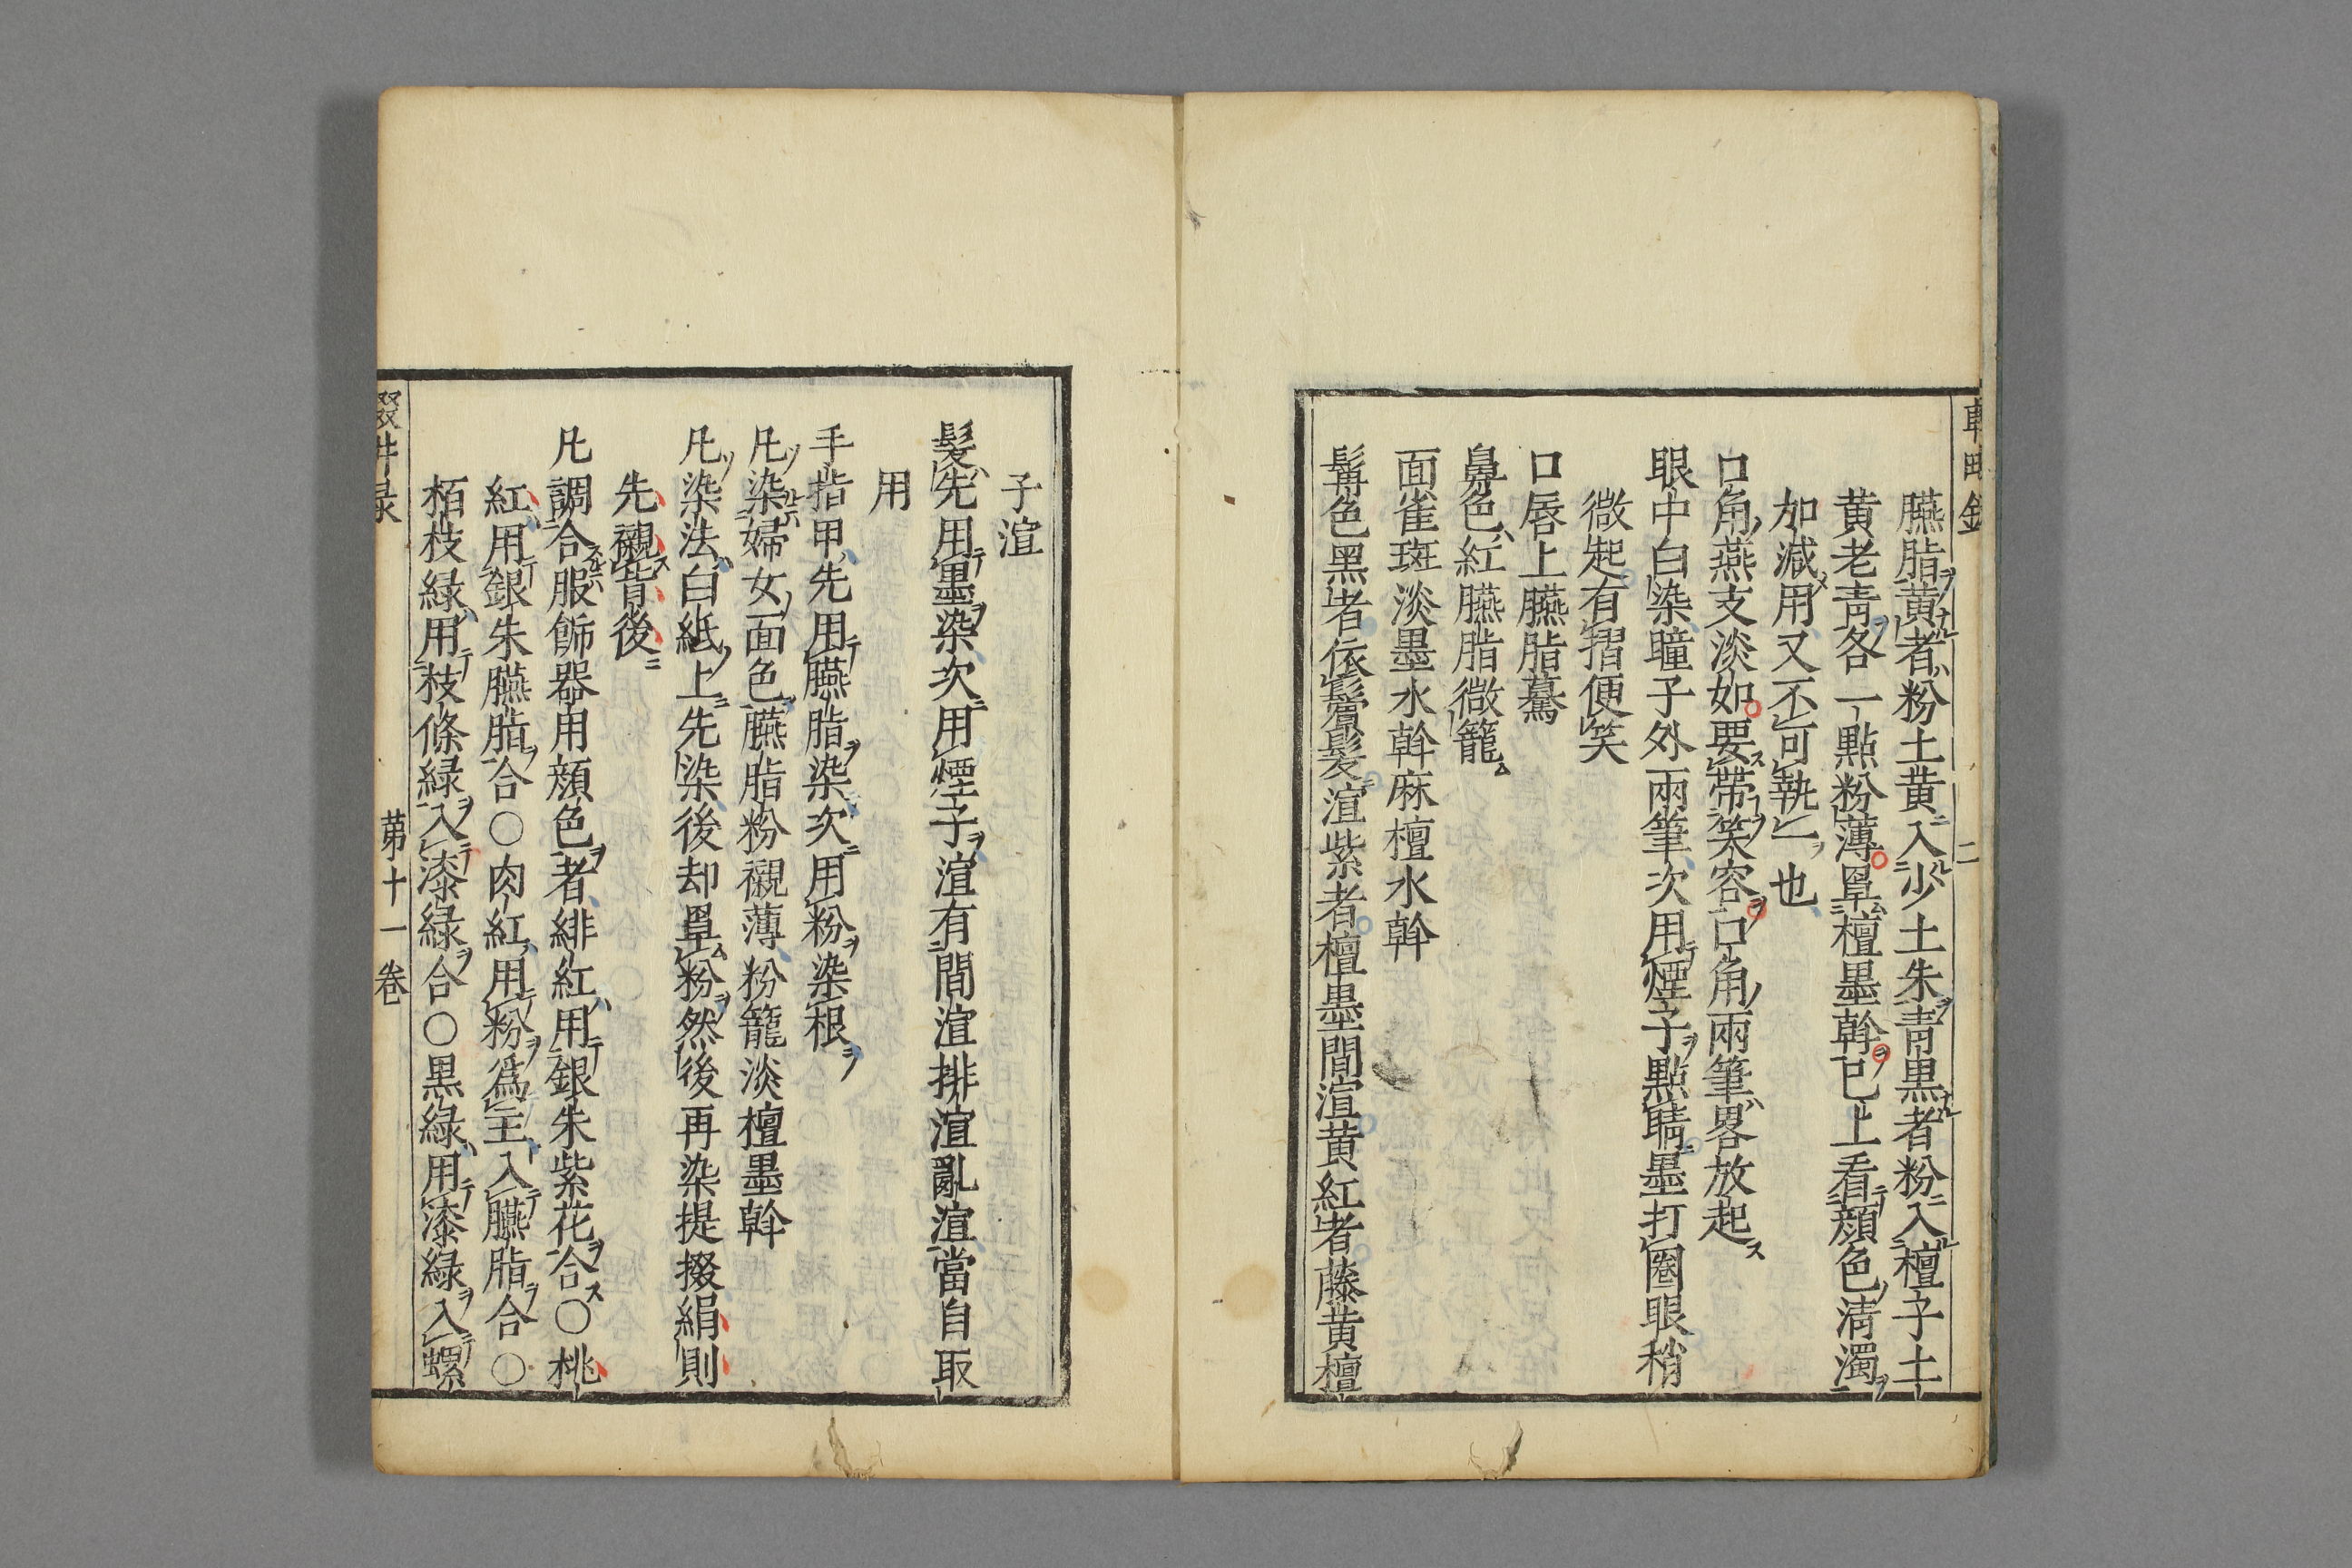 臙脂黄者粉土黄入少土朱青黒者粉入檀子土
黄老青各一點粉薄罩檀墨斡已上看顔色清濁
加減用又不可執一也
口角燕支淡如要帶笑容口角兩筆畧放起
眼中白染瞳子外兩筆次用煙子點睛墨打圈眼稍
微起有摺便笑
口唇上臙脂驀
鼻色紅臙脂微籠
面雀斑淡墨水斡麻檀水斡
髯色黒者依鬢髮渲紫者檀墨間渲黄紅者藤黄檀
二
子渲
髮先用墨染次用煙子渲有間渲排渲亂渲當自取
用
手指甲先用臙脂染次用粉染根
凡染婦女面色臙脂粉襯薄粉籠淡檀墨斡
凡染法白紙上先染後却罩粉然後再染提掇絹則
先襯背後
凡調合服飾器用顔色者緋紅用銀朱紫花合〇桃
紅用銀朱臙脂合〇肉紅用粉爲主入臙脂合〇
栢枝緑用枝條緑入漆緑合〇黒緑用漆緑入螺
第十一卷